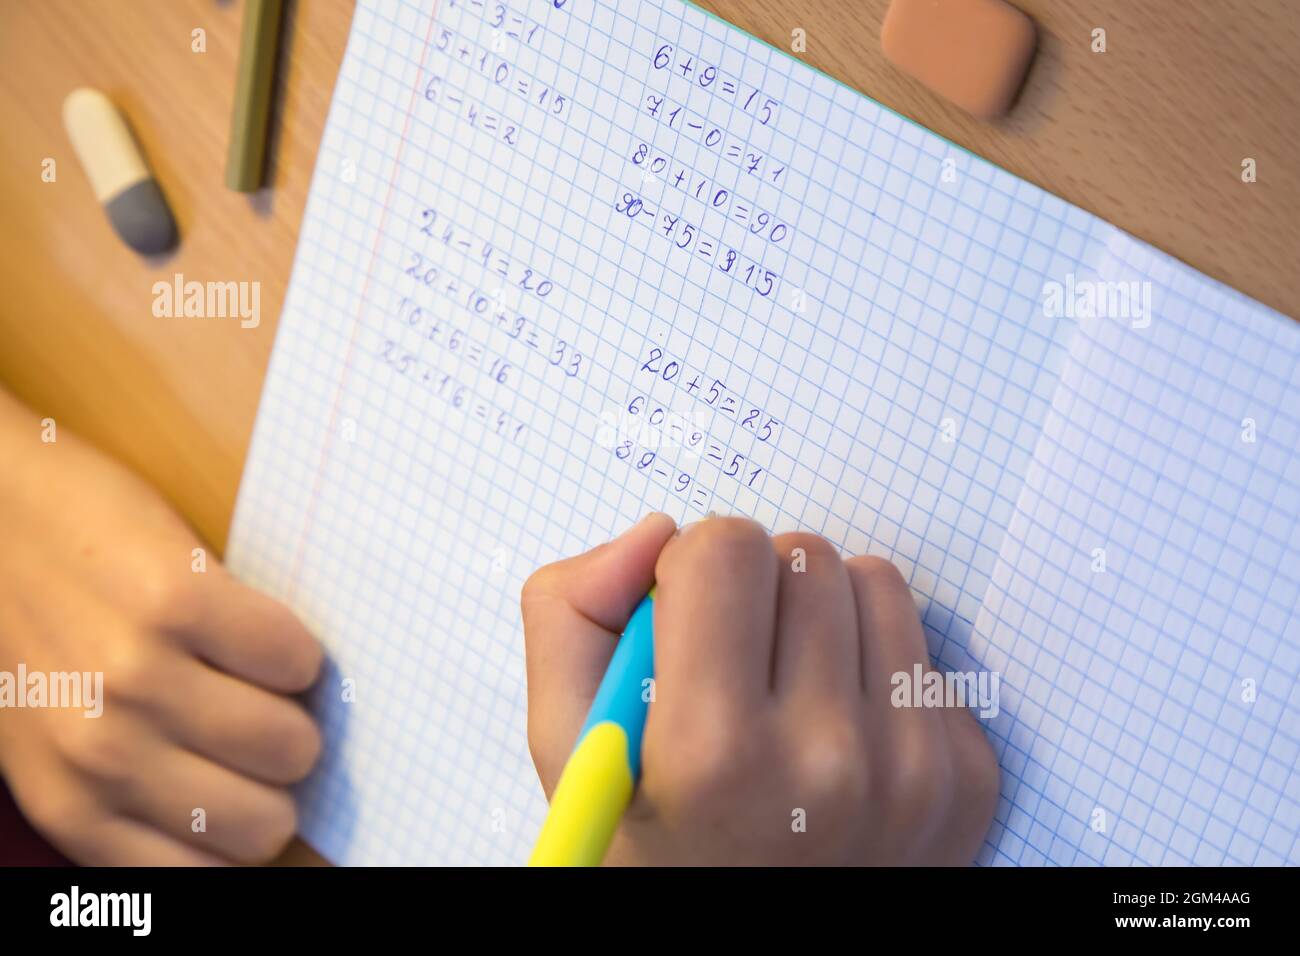 - 3 = 1
5 + 10 = 15
6 - 4 = 2
24 - 4 = 20
20 + 10 + 3 = 33
10 + 6 = 16
25 + 16 = 41
6 + 9 = 15
71 - 0 = 71
80 + 10 = 90
90 - 75 = 15
20 + 5 = 25
60 - 9 = 51
89 - 9 =
alamy
Image ID: 2GM4AAG
www.alamy.com